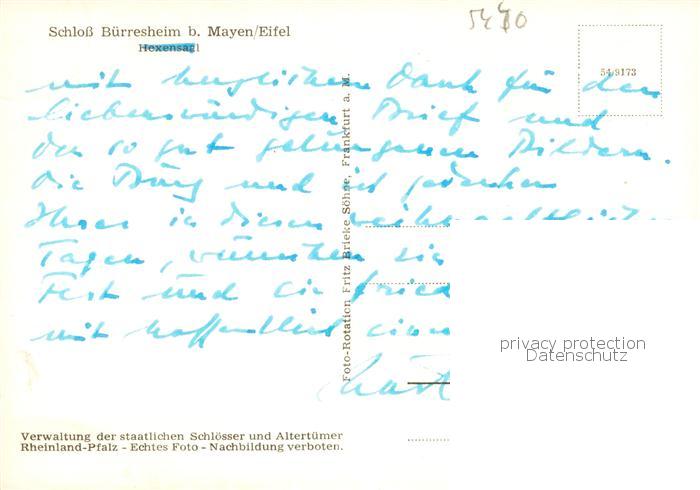 5470
Schloß Bürresheim b. Mayen/Eifel
Hexensaal
54/9173
mit herzlichem Dank für den
liebenswürdigen Brief und
die so gut gelungenen Bildern.
Die Burg und ich gedenken
Ihrer in diesen
Tagen, wünschen
Fest und ein
mit hoffentlich
Foto-Rotation Fritz Brieke Söhne, Frankfurt a. M.
privacy protection
Datenschutz
Verwaltung der staatlichen Schlösser und Altertümer
Rheinland-Pfalz - Echtes Foto - Nachbildung verboten.